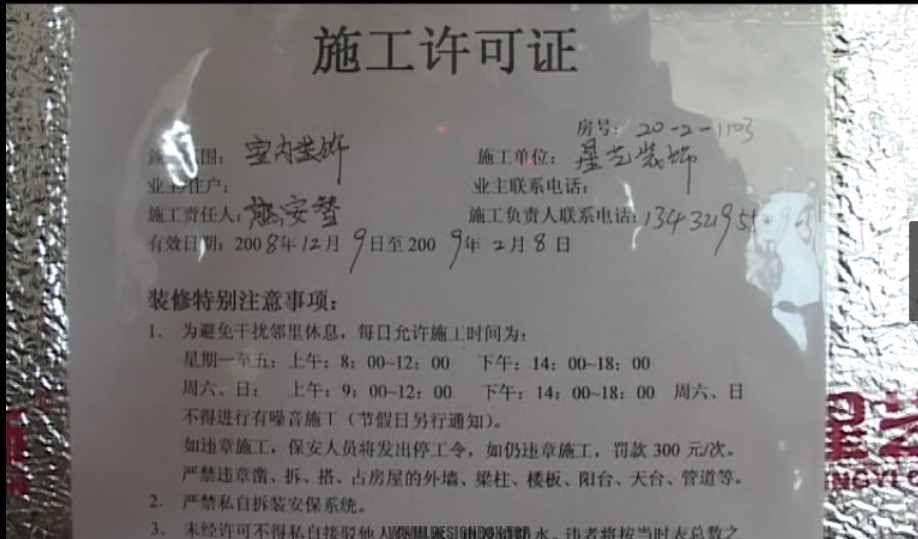 施工许可证
房号: 20-2-1103
施 范围: 室内装饰 施工单位: 星艺装饰
业主 住户: 业主联系电话:
施工责任人: 施安赞 施工负责人联系电话: 13432195
有效日期: 2008年12月9日至2009年2月8日
装修特别注意事项:
1. 为避免干扰邻里休息,每日允许施工时间为:
星期一至五: 上午: 8: 00~12: 00 下午: 14: 00~18: 00
周六、日: 上午: 9: 00~12: 00 下午: 14: 00~18: 00 周六、日
不得进行有噪音施工(节假日另行通知)。
如违章施工,保安人员将发出停工令,如仍违章施工,罚款 300 元/次。
严禁违章凿、拆、搭、占房屋的外墙、梁柱、楼板、阳台、天台、管道等。
2. 严禁私自拆装安保系统。
3. 未经许可不得私自接驳他人 水,违者将按当时表总数之